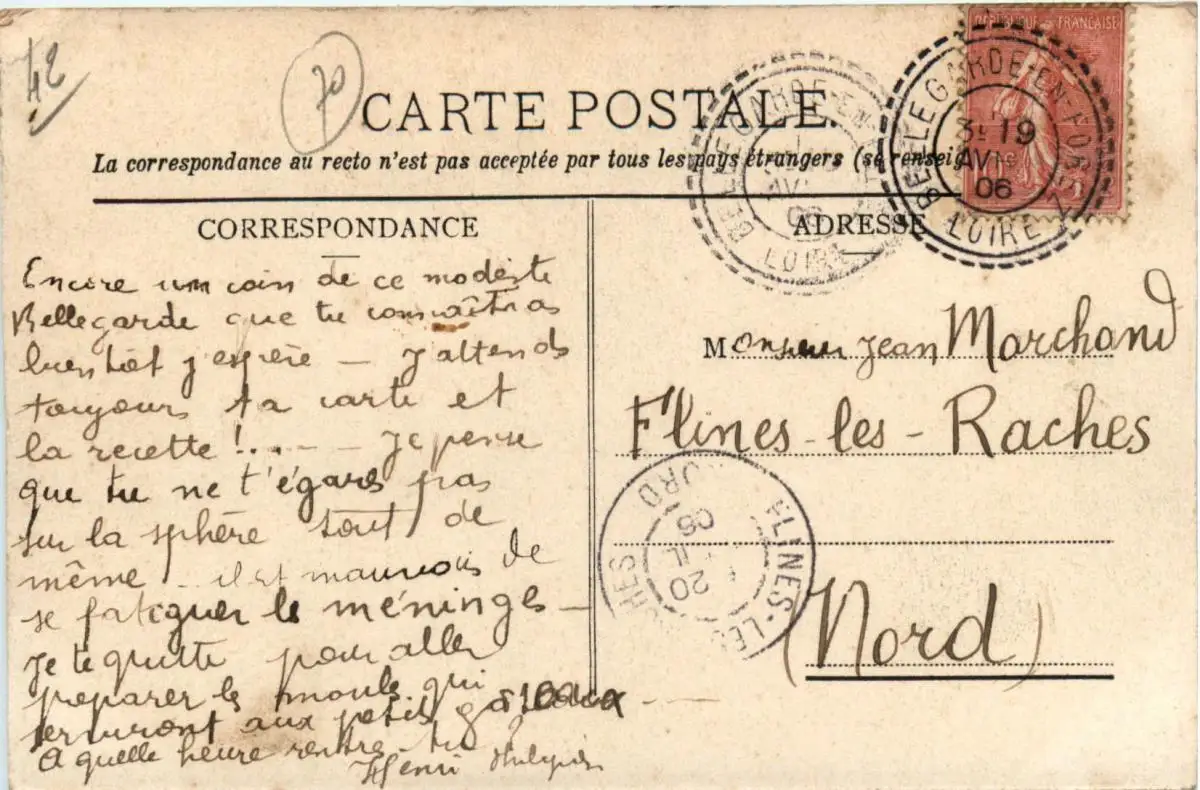 42
70
CARTE POSTALE.
La correspondance au recto n'est pas acceptée par tous les pays étrangers (se renseig
RÉPUBLIQUE FRANÇAISE
BELLEGARDE-EN-FOREZ
3E 19
AVR
06
LOIRE
BELLEGARDE-EN-
06
LOIRE
CORRESPONDANCE
Encore un coin de ce modeste
Bellegarde que tu connaîtras
bientôt j'espère – J'attends
toujours ta carte et
la recette !... – Je pense
que tu ne t'égares pas
sur la sphère tout de
même – il est mauvais de
se fatiguer les méninges –
Je te quitte pour aller
préparer les moules qui
serviront aux petits gateaux
A quelle heure rentres-tu ?
Henri
ADRESSE
Monsieur Jean Marchand
Flines-les-Raches
(Nord)
FLINES-LES-
CHES
NORD
20
06